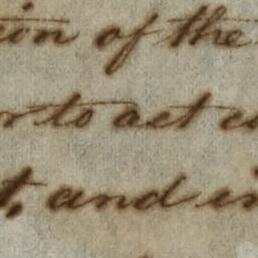 ion of the
r to act
t, and in